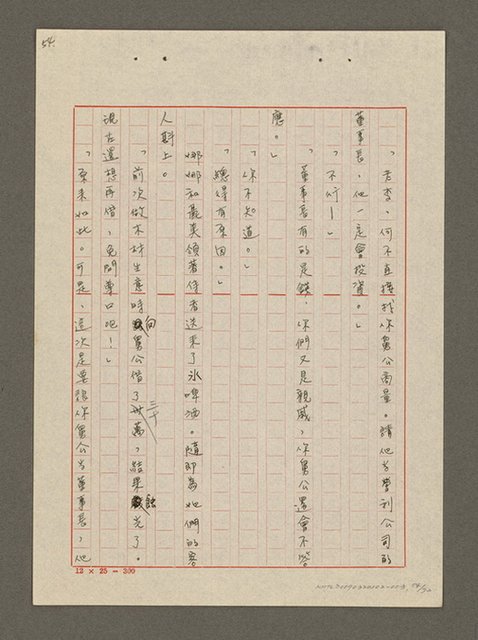 54.
「老李,何不直接找你舅公商量。請他當營利公司的
董事長,他一定會投資。」
「不行!」
「董事長有的是錢,你們又是親戚,你舅公還會不答
應。」
「你不知道。」
「總得有原因。」
娜娜和嘉美領著侍者送來了冰啤酒。隨即為她們的客
人斟上。
「前次做木材生意時向舅公借了三十萬,結果蝕光了。
現在還想再借,免開尊口吧!」
「原來如此。可是,這次是要請你舅公當董事長,他
12 × 25 = 300